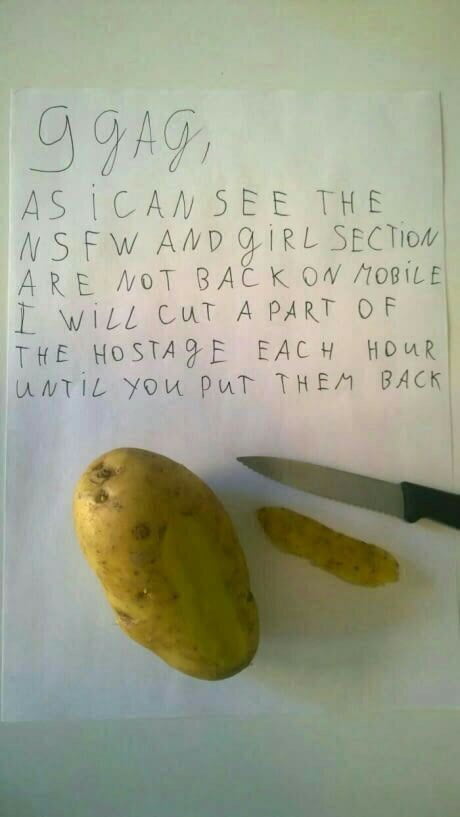 9GAG,
AS I CAN SEE THE
NSFW AND GIRL SECTION
ARE NOT BACK ON MOBILE
I WILL CUT A PART OF
THE HOSTAGE EACH HOUR
UNTIL YOU PUT THEM BACK